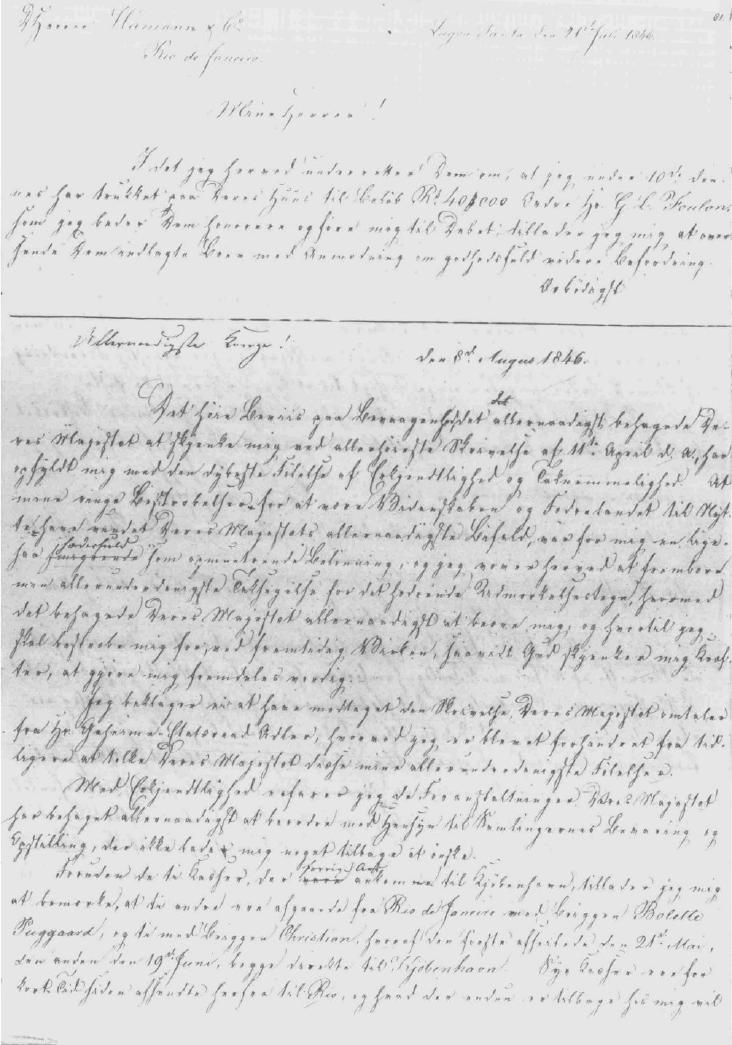 DHerrer Hamann & Co
Rio de Janeiro.
Lagoa Santa den 21de Juli 1846.
Mine Herrer!
I det jeg herved underretter Dem om, at jeg under 10de den-
nes har trukket paa Deres Huus til Beløb Rs 40$000 Ordre Hr. G. L. Foulon,
som jeg beder Dem honorere og føre mig til Debet, tillader jeg mig, at over-
sende Dem indlagte Brev med Anmodning om godhedsfuld videre Befordring.
Ærbødigst
Allernaadigste Konge!
den 8de August 1846.
Det høie Beviis paa Bevaagenhed, det allernaadigst behagede De-
res Majestæt at skjenke mig ved allerhøieste Skrivelse af 11te April d. A., har
opfyldt mig med den dybeste Følelse af Erkjendtlighed og Taknemmelighed. At
mine ringe Bestræbelser for at være Videnskaben og Fædrelandet til Nyt-
te, have vundet Deres Majestæts allernaadigste Bifald, var for mig en lige-
saa hæderfuld som opmuntrende Belønning, og jeg vover herved at frembære
min allerunderdanigste Taksigelse for det hædrende Udmærkelsestegn, hvormed
det behagede Deres Majestæt allernaadigst at beære mig, og hvortil jeg
skal bestræbe mig for, ved fremtidig Virken, saavidt Gud skjenker mig Kræf-
ter, at gjøre mig fremdeles værdig.
Jeg beklager ei at have modtaget den Skrivelse, Deres Majestæt omtaler
fra Hr. Geheime-Etatsraad Adler, hvorved jeg er blevet forhindret fra tid-
ligere at tolke Deres Majestæt disse mine allerunderdanigste Følelser.
Med Erkjendtlighed erfarer jeg de Foranstaltninger Deres Majestæt
har behaget allernaadigst at beordre med Hensyn til Samlingernes Bevaring og
Opstilling, der ikke lader mig noget tilbage at ønske.
Foruden de ti Kasser, der forrige Aar ankom til Kjöbenhavn, tillader jeg mig
at bemærke, at ti andre ere afgaaede fra Rio de Janeiro med Briggen Bolette
Puggaard, og ti med Briggen Christian, hvoraf den første afseilede den 21de Mai,
den anden den 19de Juni, begge directe til Kjöbenhavn. Syv Kasser ere for
kort Tid siden afsendte herfra til Rio, og hvad der endnu er tilbage hos mig vil